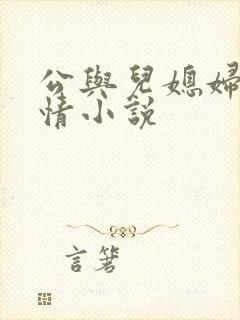 公與兒媳婦
情小說
言箸